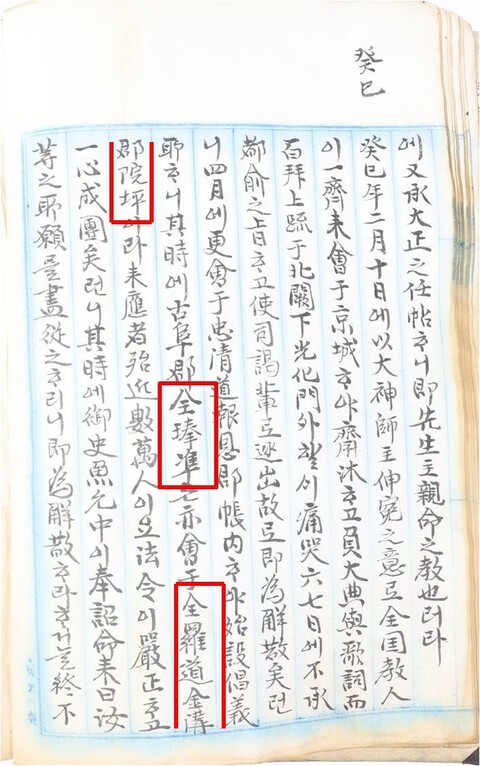 癸巳
에又承大正之任帖ᄒᆞ니即先生主親命之教也더라
癸巳年二月十日에以大神師主伸寃之意로全国教人
이一齊来會于京城ᄒᆞ야齋沐ᄒᆞ고負大典與歌詞而
百拜上疏于北闕下光化門外할ᄉᆡ痛哭六七日에不承
都兪之上旨ᄒᆞ고使司謁輩로逐出故로即為解散矣런
니四月에更會于忠清道報恩郡帳内ᄒᆞ야始設倡義
所ᄒᆞ니其時에古阜郡全琫準은亦會于全羅道金溝
郡院坪이라来應者殆近數萬人이오法令이嚴正ᄒᆞ고
一心成團矣런니其時에御史魚允中이奉詔命来曰汝
等之所願을盡從之ᄒᆞ리니即為解散ᄒᆞ라ᄒᆞ거늘終不